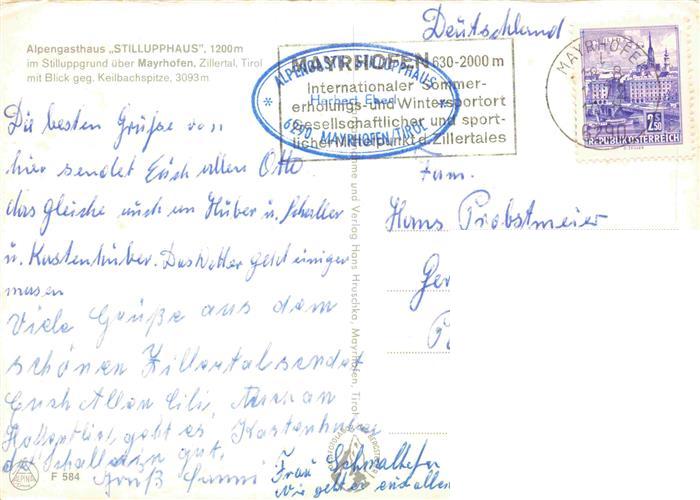 Alpengasthaus „STILLUPPHAUS", 1200 m
im Stilluppgrund über Mayrhofen, Zillertal, Tirol
mit Blick geg. Keilbachspitze, 3093 m
Deutschland
MAYRHOFEN 630-2000 m
Internationaler Sommer-
erholungs- und Wintersportort
Gesellschaftlicher und sport-
licher Mittelpunkt d. Zillertales
ALPENGASTH. STILLUPPHAUS
6290 MAYRHOFEN/TIROL
MAYRHOFEN
6290
2.50
REPUBLIK ÖSTERREICH
Die besten Grüße von
hier sendet Euch allen Otto
das gleiche auch an Huber u. Schaller
u. Kastenhuber. Das Wetter geht einiger
masen
Viele Grüße aus dem
schönen Zillertal sendet
Euch Allen
Hoffentlich geht es Kastenhuber
gut.
Gruß
Fam.
Hans Probstmeier
und Verlag Hans Hruschka, Mayrhofen, Tirol
Frau
wie geht es euch allen
ALPINA
F 584